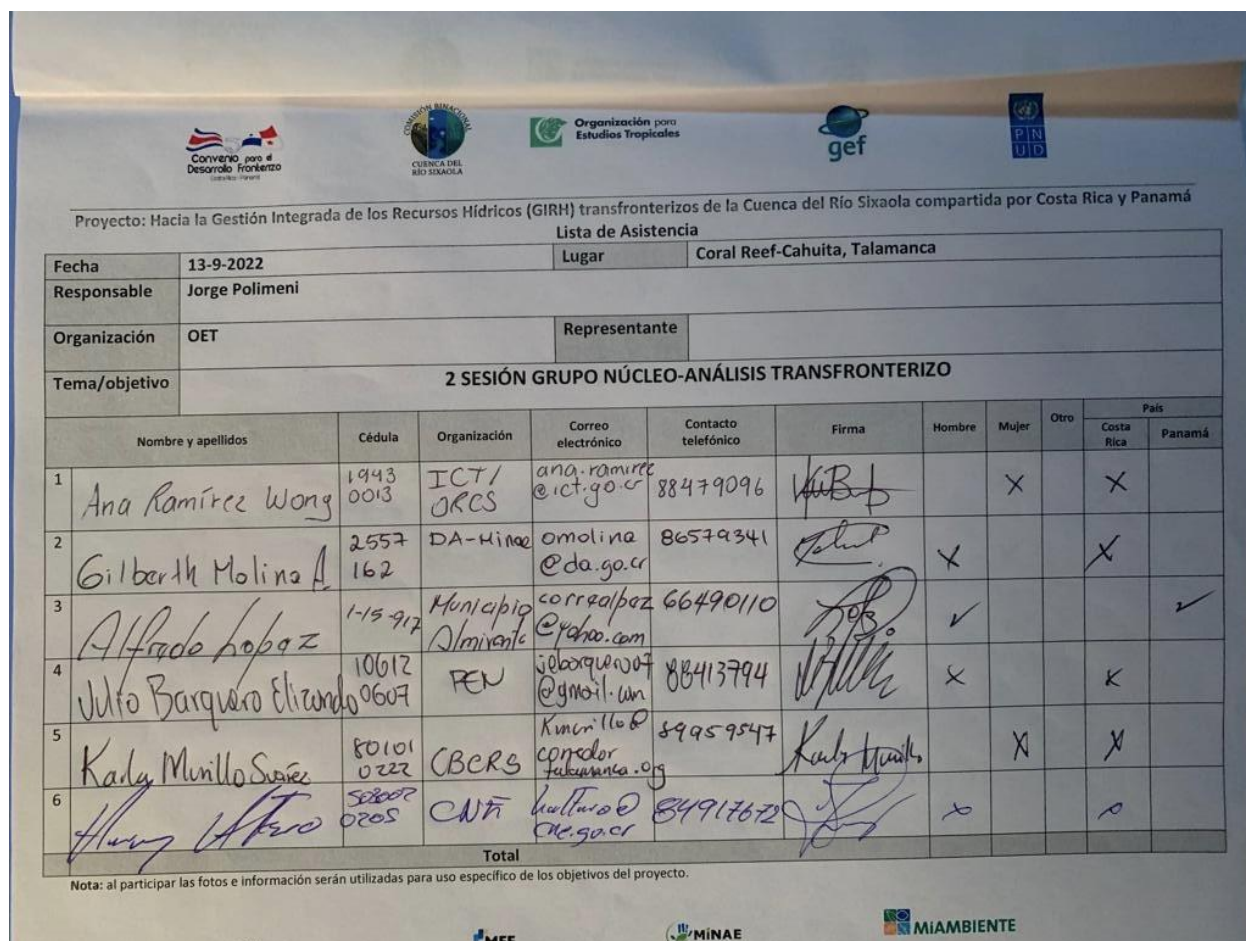 Convenio para el
Desarrollo Fronterizo
Costa Rica - Panamá
COMISIÓN BINACIONAL
CUENCA DEL
RÍO SIXAOLA
Organización para
Estudios Tropicales
gef
PNUD
Proyecto: Hacia la Gestión Integrada de los Recursos Hídricos (GIRH) transfronterizos de la Cuenca del Río Sixaola compartida por Costa Rica y Panamá
Lista de Asistencia
Fecha 13-9-2022 Lugar Coral Reef-Cahuita, Talamanca
Responsable Jorge Polimeni
Organización OET Representante
Tema/objetivo 2 SESIÓN GRUPO NÚCLEO-ANÁLISIS TRANSFRONTERIZO
Nombre y apellidos Cédula Organización Correo electrónico Contacto telefónico Firma Hombre Mujer Otro País Costa Rica Panamá
1 Ana Ramírez Wong 1943 0013 ICT/ ORCS ana.ramirez @ict.go.cr 88479096 X X
2 Gilberth Molina A 2557 162 DA-Minae omolina @da.go.cr 86579341 X X
3 Alfredo Lopaz 1-15-917 Municipio Almirante correalpaz @yahoo.com 66490110 ✓ ✓
4 Julio Barquero Elizondo 10612 0607 PEN jebarquero07 @gmail.com 88413794 X X
5 Karla Murillo Suárez 80101 0222 CBCRS Kmurillo@ corredor talamanca.org 89959547 Karla Murillo X X
6 0205 CNE @ cne.go.cr 84917672 x
Total
Nota: al participar las fotos e información serán utilizadas para uso específico de los objetivos del proyecto.
MEF
MiNAE
MiAMBIENTE